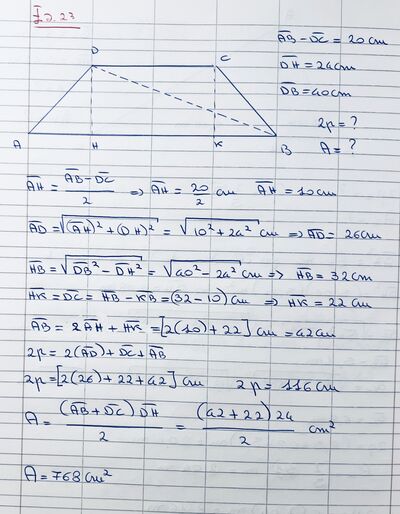 Es. 23
D C
A H K B
AB̅ - DC̅ = 20 cm
DH̅ = 24 cm
DB̅ = 40 cm
2p = ?
A = ?
AH̅ = (AB̅ - DC̅)/2 ⇒ AH̅ = 20/2 cm AH̅ = 10 cm
AD̅ = √((AH̅)² + (DH)²) = √(10² + 24²) cm ⇒ AD̅ = 26 cm
HB̅ = √(DB̅² - DH̅²) = √(40² - 24²) cm ⇒ HB̅ = 32 cm
HK̅ = DC̅ = HB̅ - KB̅ = (32 - 10) cm ⇒ HK̅ = 22 cm
AB̅ = 2AH̅ + HK̅ = [2(10) + 22] cm = 42 cm
2p = 2(AD̅) + DC̅ + AB̅
2p = [2(26) + 22 + 42] cm 2p = 116 cm
A = (AB̅ + DC̅) DH̅/2 = (42 + 22) 24/2 cm²
A = 768 cm²